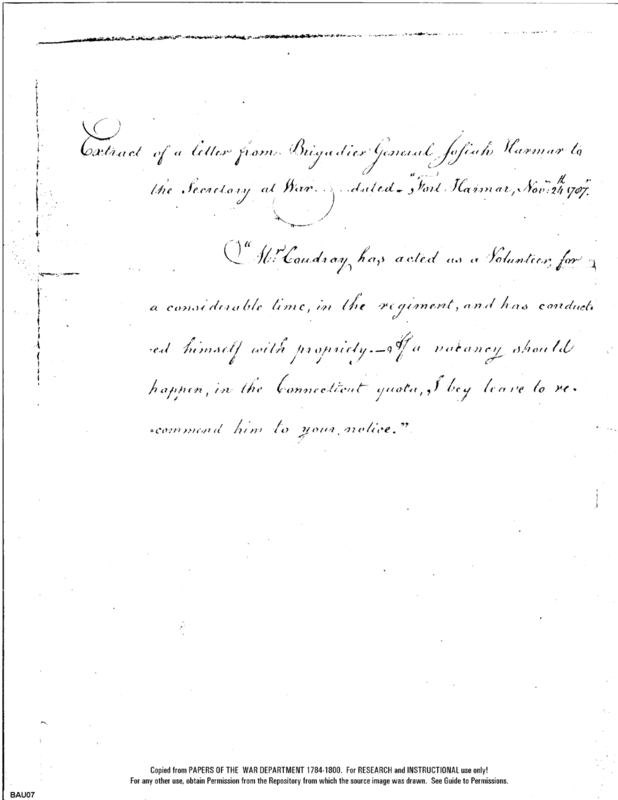 Extract of a letter from Brigadier General Josiah Harmar to
the Secretary at War dated "Fort Harmar, Novr. 24th 1787."
"Mr Coudray has acted as a Voluntier, for
a considerable time, in the regiment, and has conduct-
-ed himself with propriety. — If a vacancy should
happen, in the Connecticut quota, I beg leave to re-
-commend him to your notice."
Copied from PAPERS OF THE WAR DEPARTMENT 1784-1800. For RESEARCH and INSTRUCTIONAL use only!
For any other use, obtain Permission from the Repository from which the source image was drawn. See Guide to Permissions.
BAU07